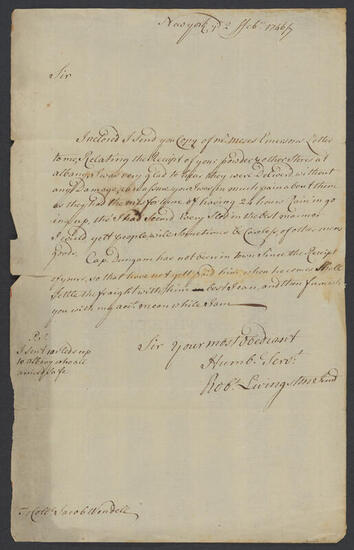 New york ye 2 ffebr. 1746/7
Sir
Inclosed I send you Copy of mr. moses Emersons Letter
to me, Relating the Receipt of your powder & other Stores at
albany I was very Glad to hear they were Delivered without
any Damage, as you were in much pain about them
as they had the misfortune of having 24 hours Rain in go
ing up, tho I had found very Slop in the best manner
I Could yett people will Sometimes be Careless of other mens
goods.
Cap. Dungam has not been in town Since the Receipt
of yours, so that have not yett paid him, when he comes I shall
Settle the freight with him as best I can, and then furnish
you with my acct. mean while I am
Sir Your most obedient
Humb. Servt.
Robt. Livingston Junr
Ps.
I sent
up
to albany who all
arrived Safe
To Coll. Jacob Wendell